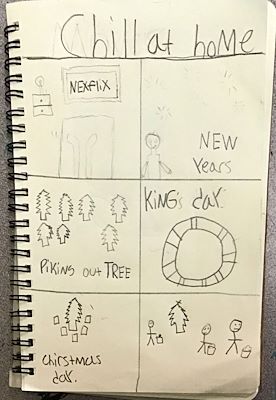 Chill at home
NEXFliX
NEW
Years
PiKiNg out TREE
KiNg's day.
Chirstmas
day.